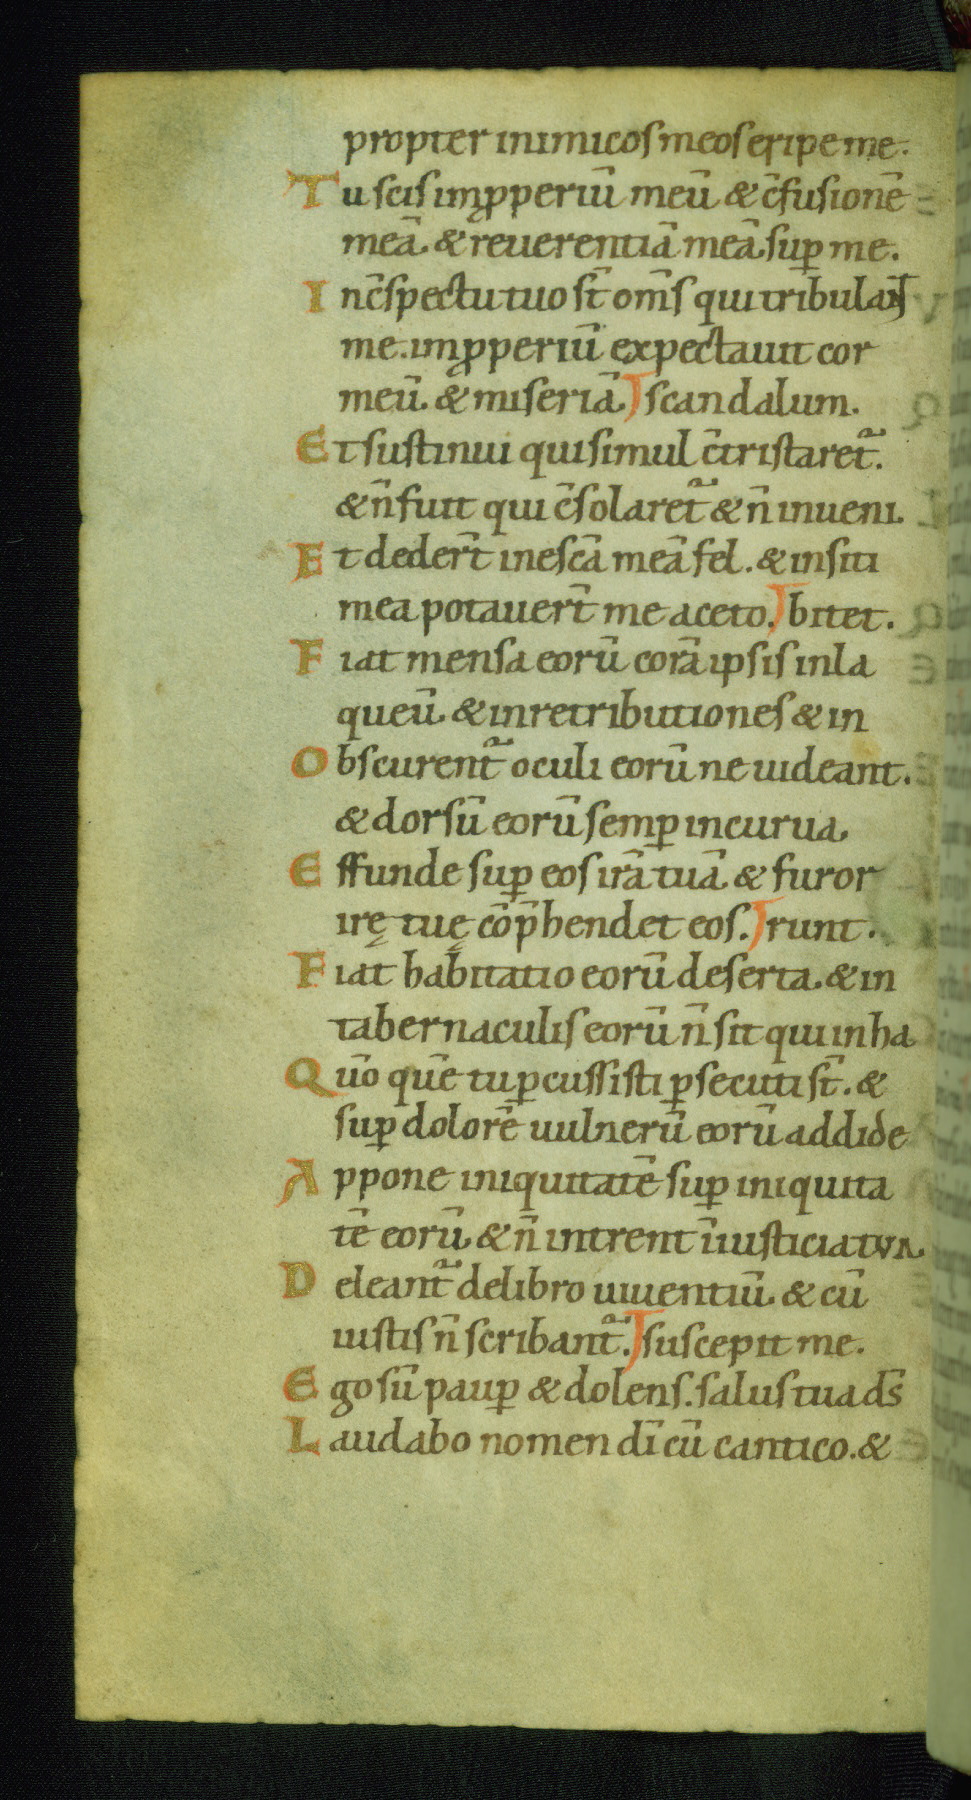 propter inimicos meos eripe me.
Tu scis imꝓperiū meū & c̄fusionē
meā. & reuerentiā meā sup̱ me.
In c̄spectu tuo st̄ om̄s qui tribulant
me. imꝓperiū expectauit cor
meū. & miseriā. scandalum.
Et sustinui qui simul c̄tristaret᷑.
& n̄ fuit qui c̄solaret᷑ & n̄ inueni.
Et deder̄t in escā meā fel. & in siti
mea potauer̄t me aceto. bitet.
Fiat mensa eorū corā ipsis in la
queū. & in retributiones & in
Obscurent᷑ oculi eorū ne uideant.
& dorsū eorū semꝑ incurua.
Effunde suꝑ eos irā tuā. & furor
irę tuę cōp̄hendet eos. runt.
Fiat habitatio eorū deserta. & in
tabernaculis eorū n̄ sit qui inha
Qūo quē tu ꝑcussisti ꝑsecuti st̄. &
suꝑ dolorē uulnerū eorū addide
Appone iniquitatē suꝑ iniquita
tē eorū. & n̄ intrent ī iusticia tua.
Deleant᷑ de libro uiuentiū. & cū
iustis n̄ scribant᷑. suscepit me.
Ego sū pauꝑ & dolens. salus tua ds̄
Laudabo nomen dī cū cantico. &